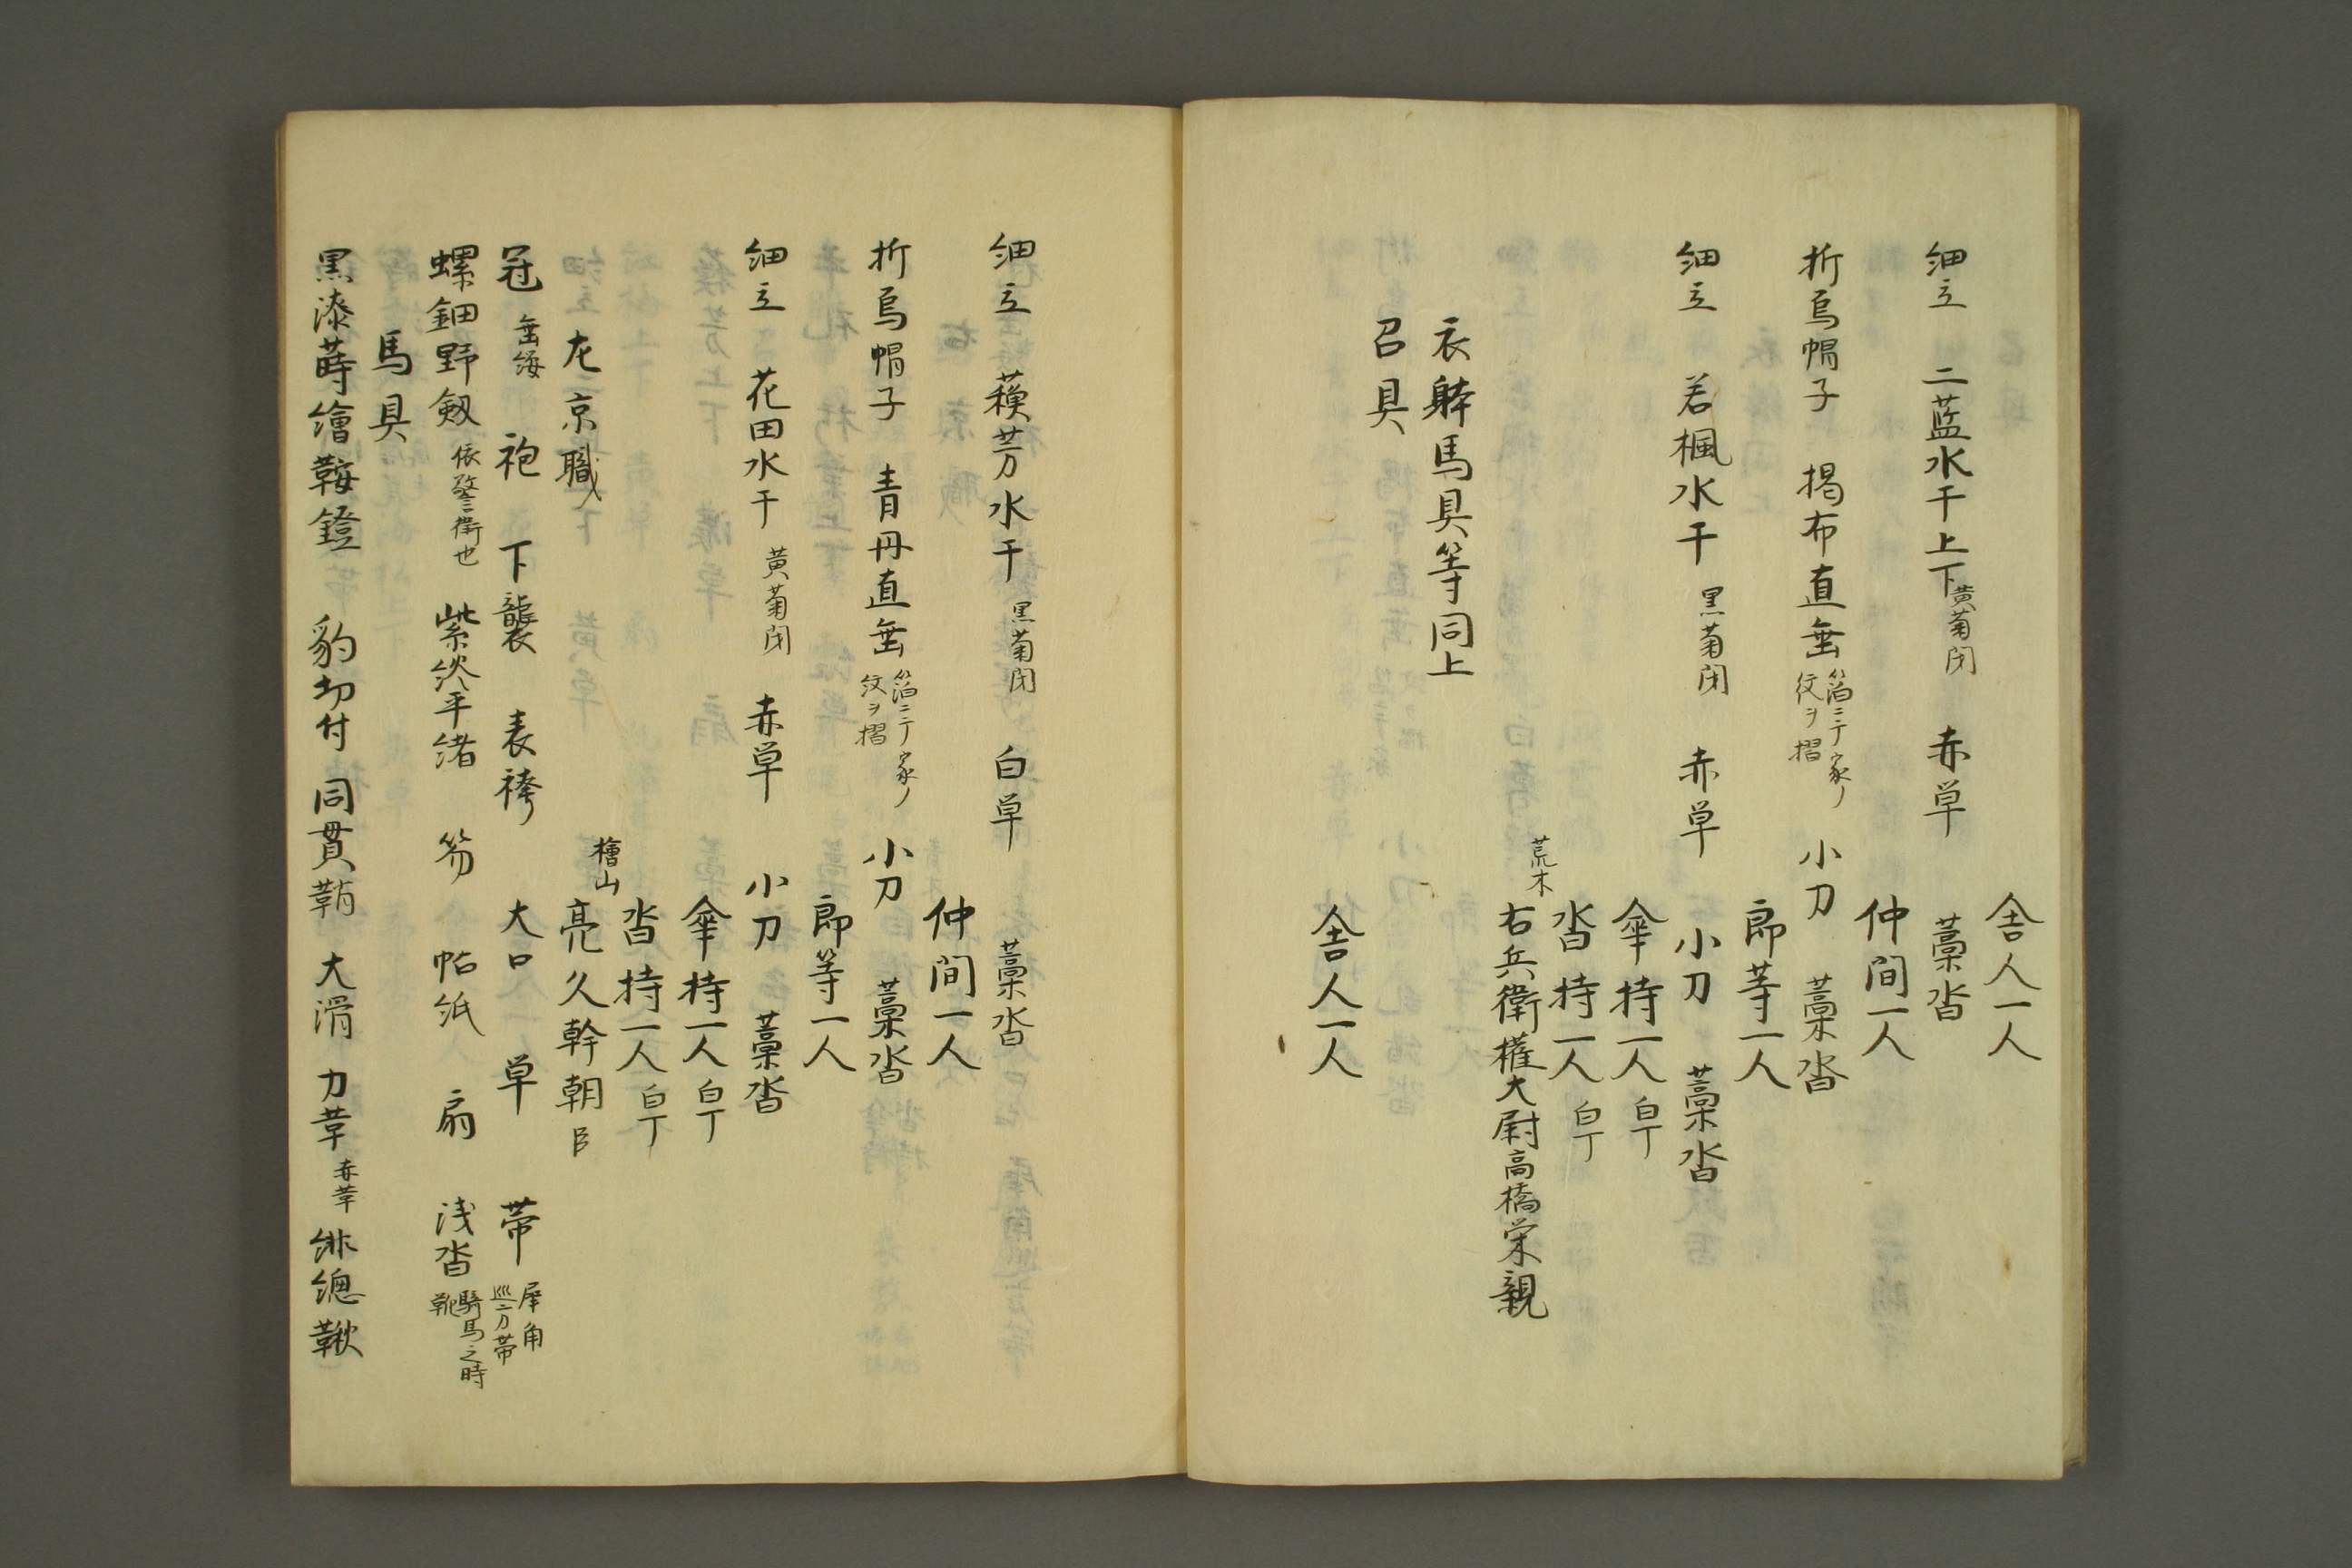 舎人一人
細立　二藍水干上下黄菊閉　赤単　藁沓
仲間一人
折烏帽子　褐布直垂箔ニテ家ノ紋ヲ摺　小刀　藁沓
郎等一人
細立　若楓水干黒菊閉　赤単　小刀　藁沓
傘持一人白丁
沓持一人白丁
荒木
右兵衛権大尉高橋栄親
衣躰馬具等同上
召具
舎人一人
細立　蘓芳水干黒菊閉　白単　藁沓
仲間一人
折烏帽子　青丹直垂箔ニテ家ノ紋ヲ摺　小刀　藁沓
郎等一人
細立　花田水干黄菊閉　赤単　小刀　藁沓
傘持一人白丁
沓持一人白丁
檜山
左京職　亮久幹朝臣
冠垂纓　袍　下襲　表袴　大口　単　帯犀角巡方帯
螺鈿野剱依警衛也　紫淡平緒　笏　帖紙　扇　浅沓騎馬之時靴
馬具
黒漆蒔繪鞍鐙　豹切付　同貫鞘　大滑　力革赤革　緋總鞦